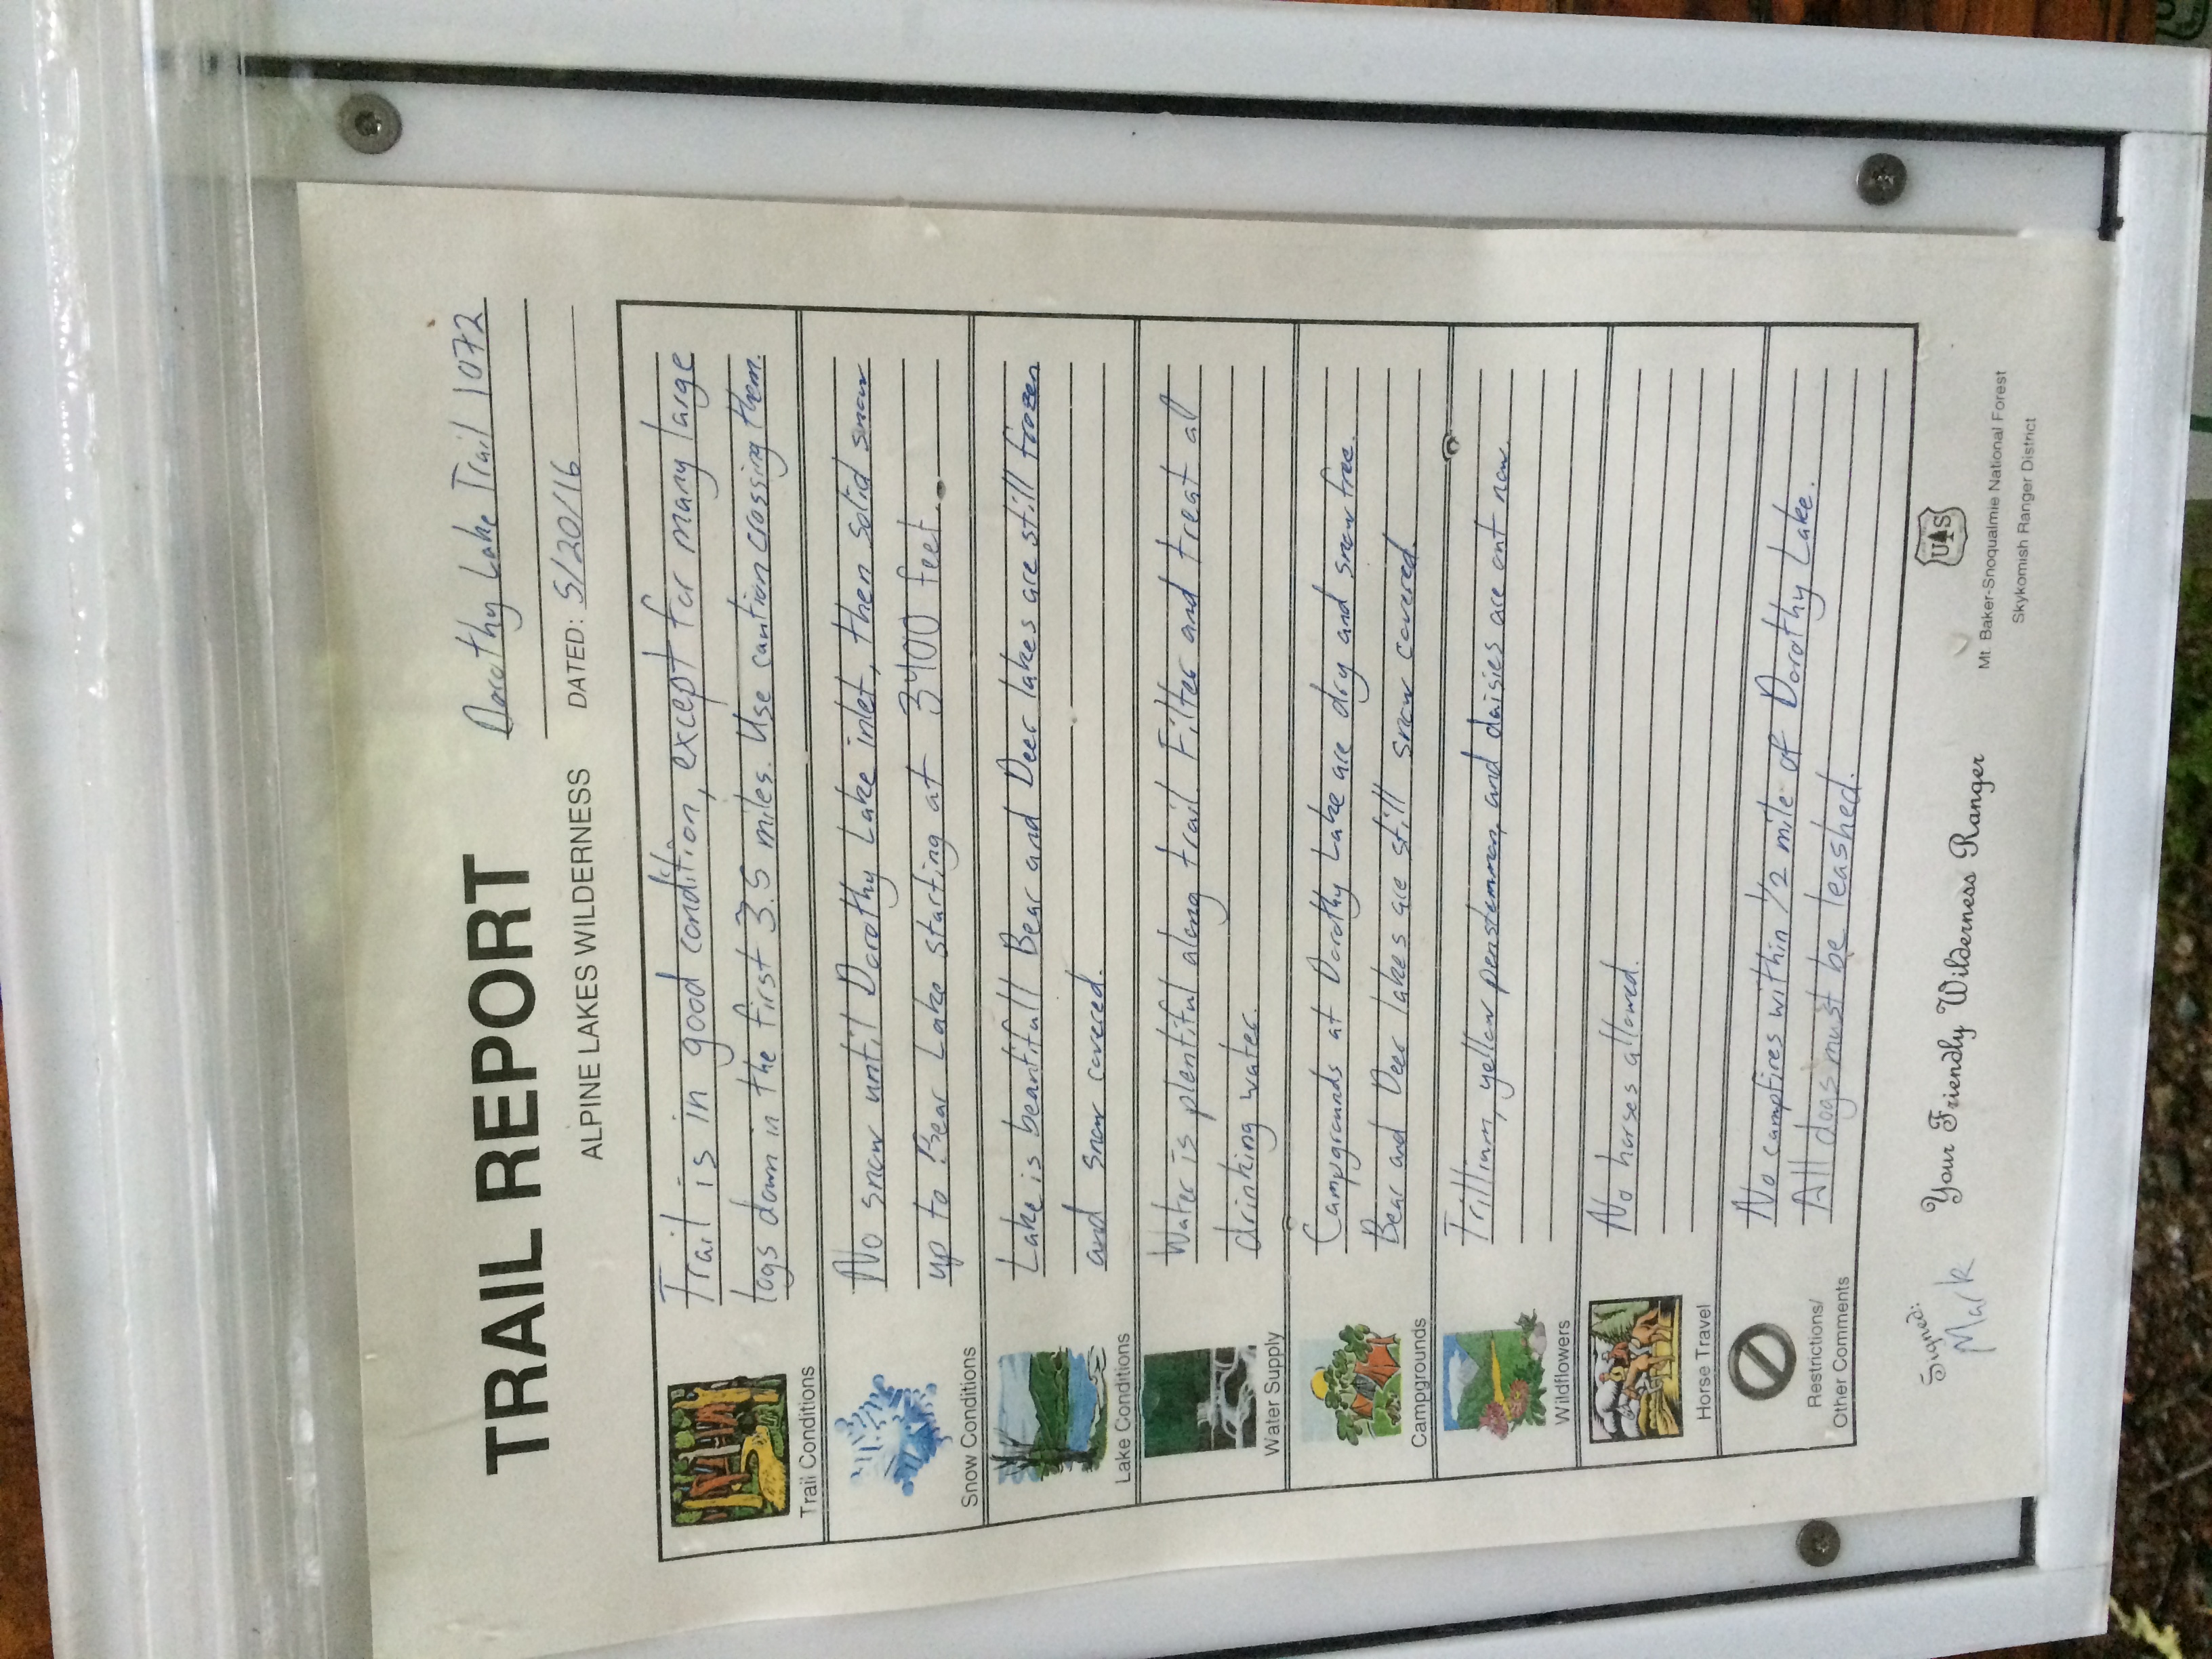 TRAIL REPORT
Dorothy Lake Trail 1072
ALPINE LAKES WILDERNESS DATED: 5/20/16
Trail is in good condition, except for many large
logs down in the first 3.5 miles. Use caution crossing them.
Trail Conditions
No snow until Dorothy Lake inlet, then solid snow
up to Bear Lake starting at 3400 feet.
Snow Conditions
Lake is beautiful! Bear and Deer lakes are still frozen
and snow covered.
Lake Conditions
Water is plentiful along trail. Filter and treat all
drinking water.
Water Supply
Campgrounds at Dorothy Lake are dry and snow free.
Bear and Deer lakes are still snow covered.
Campgrounds
Trillium, yellow penstemmon, and daisies are out now.
Wildflowers
No horses allowed.
Horse Travel
No campfires within 1/2 mile of Dorothy Lake.
All dogs must be leashed.
Restrictions/
Other Comments
Signed:
Mark
Your Friendly Wilderness Ranger
UAS
Mt. Baker-Snoqualmie National Forest
Skykomish Ranger District